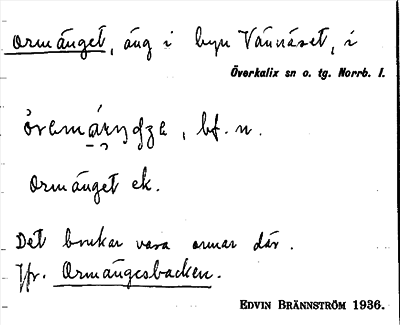 Ormänget, äng i byn Vännäset, i
Överkalix sn o. tg. Norrb. l.
bf. n.
Ormänget ek.
Det brukar vara ormar där.
Jfr. Ormängesbacken.
EDVIN BRÄNNSTRÖM 1936.